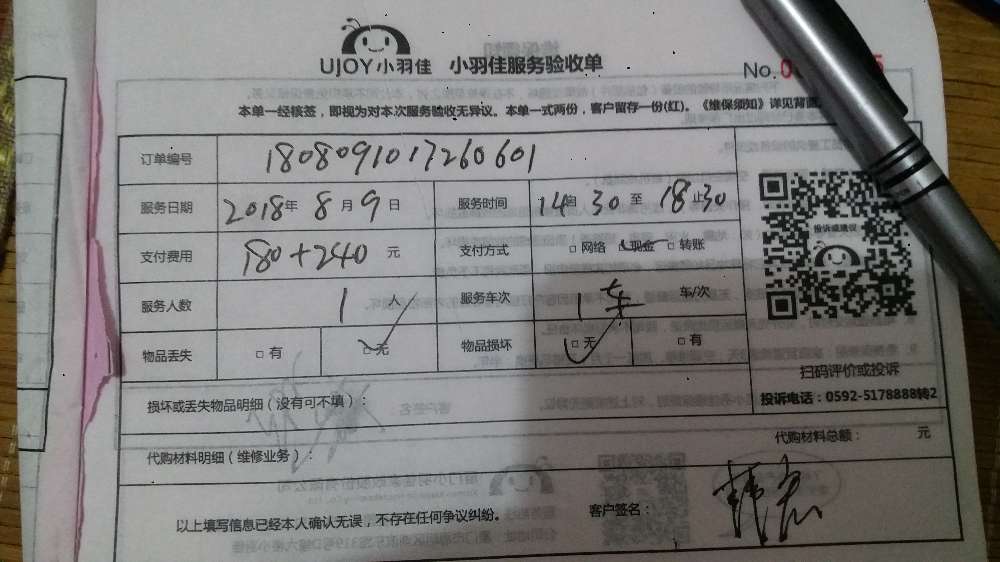 UJOY小羽佳 小羽佳服务验收单
No.
本单一经核签，即视为对本次服务验收无异议。本单一式两份，客户留存一份(红)。《维保须知》详见背面
订单编号 1808091017260601
服务日期 2018年 8月 9日 服务时间 14时30至18时30
支付费用 180+240 元 支付方式 □网络 现金 □转账
服务人数 1 人 服务车次 1车 车/次
物品丢失 □有 □无 物品损坏 □无 □有
投诉或建议
扫码评价或投诉
投诉电话：0592-5178888转2
损坏或丢失物品明细（没有可不填）：
代购材料明细（维修业务）： 代购材料总额： 元
以上填写信息已经本人确认无误，不存在任何争议纠纷。 客户签名：